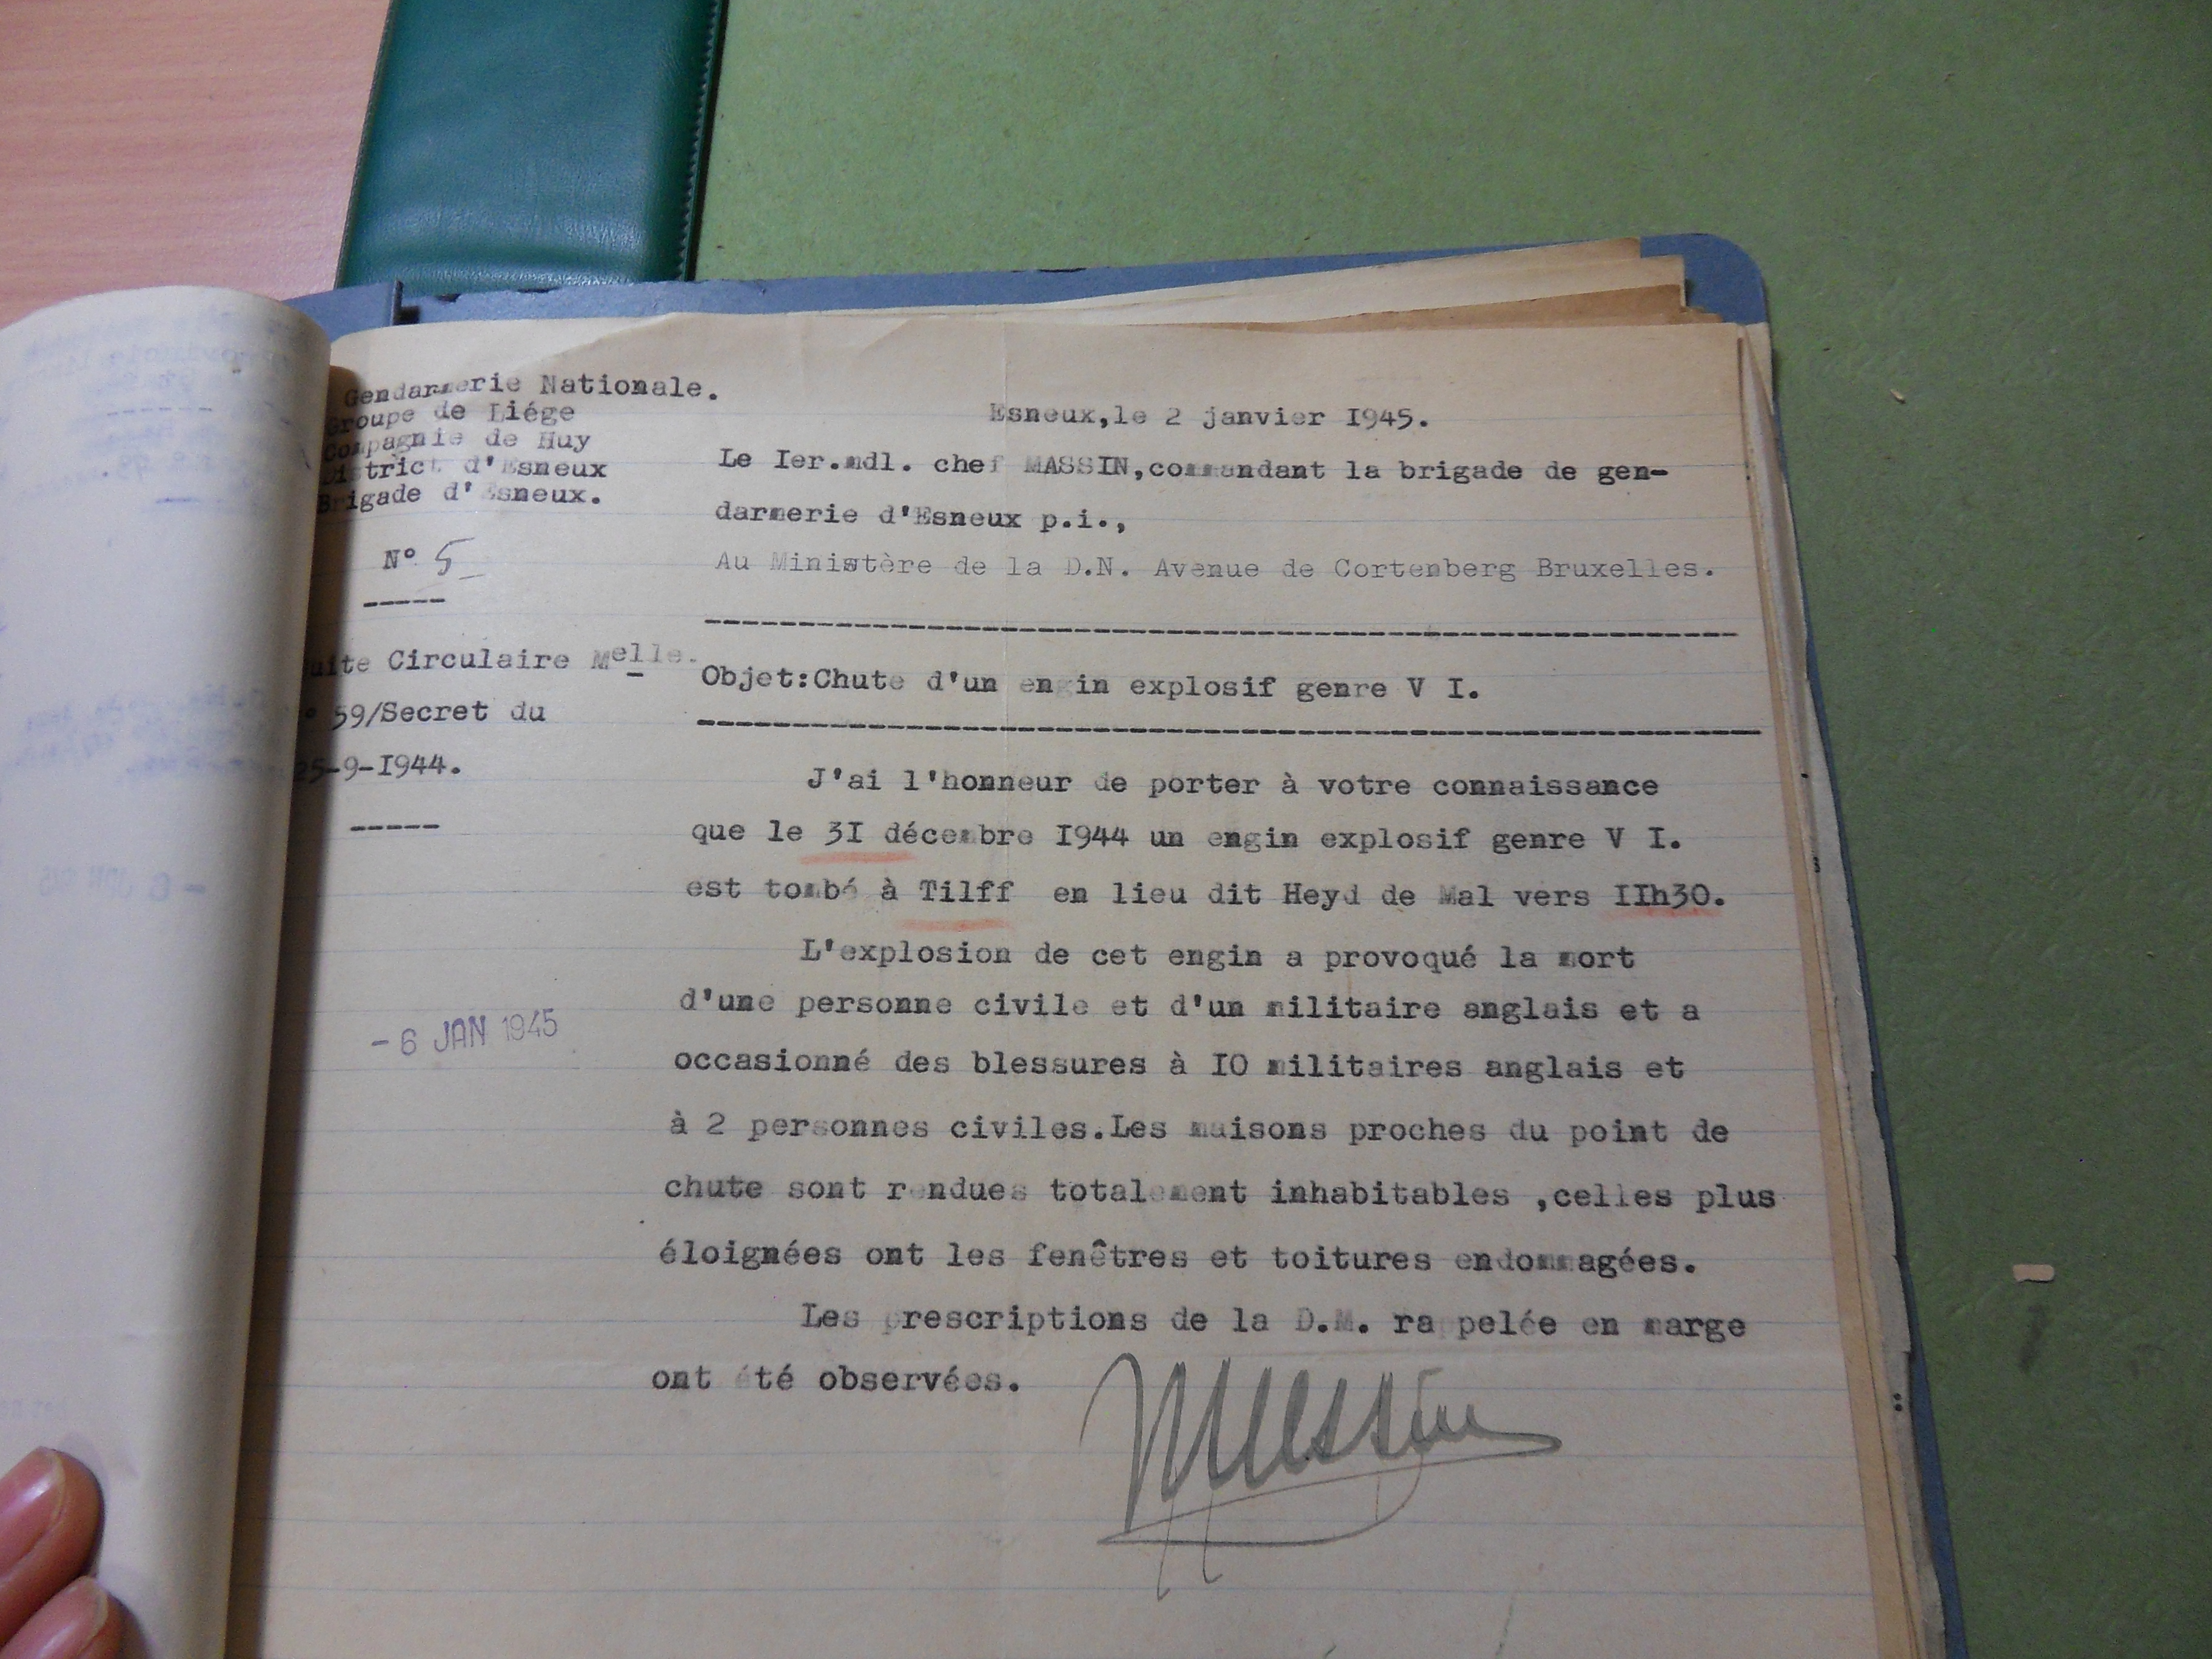 Gendarmerie Nationale.
Groupe de Liége
Compagnie de Huy
District d'Esneux
Brigade d'Esneux.
N° 5
-----
Suite Circulaire Melle.
N° 59/Secret du
25-9-I944.
-----
- 6 JAN 1945
Esneux,le 2 janvier I945.
Le Ier.mdl. chef MASSIN,commandant la brigade de gen-
darmerie d'Esneux p.i.,
Au Ministère de la D.N. Avenue de Cortenberg Bruxelles.
Objet:Chute d'un engin explosif genre V I.
J'ai l'honneur de porter à votre connaissance
que le 3I décembre I944 un engin explosif genre V I.
est tombé à Tilff en lieu dit Heyd de Mal vers IIh30.
L'explosion de cet engin a provoqué la mort
d'une personne civile et d'un militaire anglais et a
occasionné des blessures à IO militaires anglais et
à 2 personnes civiles.Les maisons proches du point de
chute sont rendues totalement inhabitables ,celles plus
éloignées ont les fenêtres et toitures endommagées.
Les prescriptions de la D.M. rappelée en marge
ont été observées.
Massin